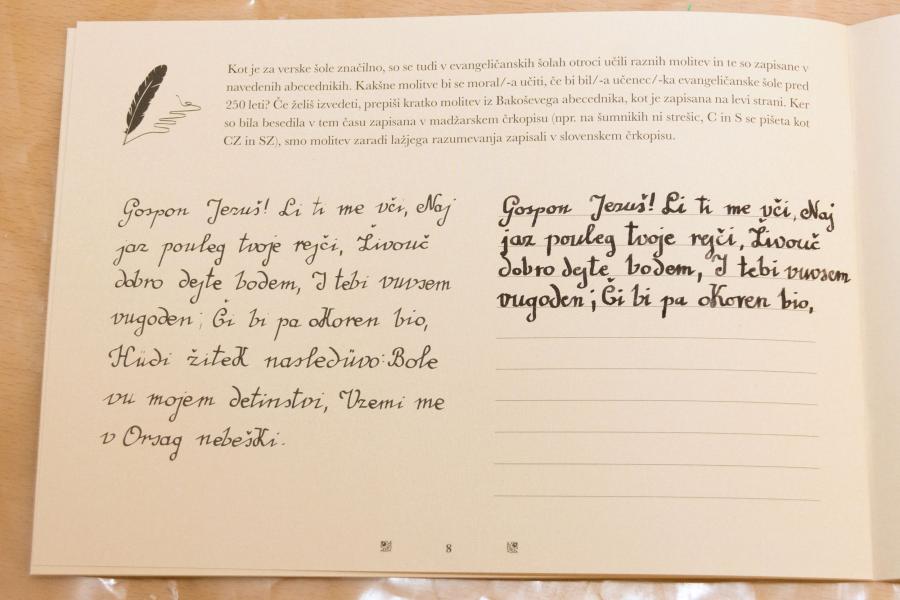 Kot je za verske šole značilno, so se tudi v evangeličanskih šolah otroci učili raznih molitev in te so zapisane v
navedenih abecednikih. Kakšne molitve bi se moral/-a učiti, če bi bil/-a učenec/-ka evangeličanske šole pred
250 leti? Če želiš izvedeti, prepiši kratko molitev iz Bakoševega abecednika, kot je zapisana na levi strani. Ker
so bila besedila v tem času zapisana v madžarskem črkopisu (npr. na šumnikih ni strešic, C in S se pišeta kot
CZ in SZ), smo molitev zaradi lažjega razumevanja zapisali v slovenskem črkopisu.
Gospon Jezuš! Li ti me vči, Naj
jaz pouleg tvoje rejči, Živouč
dobro dejte bodem, I tebi vuvsem
vugoden; Či bi pa okoren bio,
Hüdi žitek nasledüvo: Bole
vu mojem detinstvi, Vzemi me
v Orsag nebeški.
Gospon Jezuš! Li ti me vči, Naj
jaz pouleg tvoje rejči, Živouč
dobro dejte bodem, I tebi vuvsem
vugoden; Či bi pa okoren bio,
8